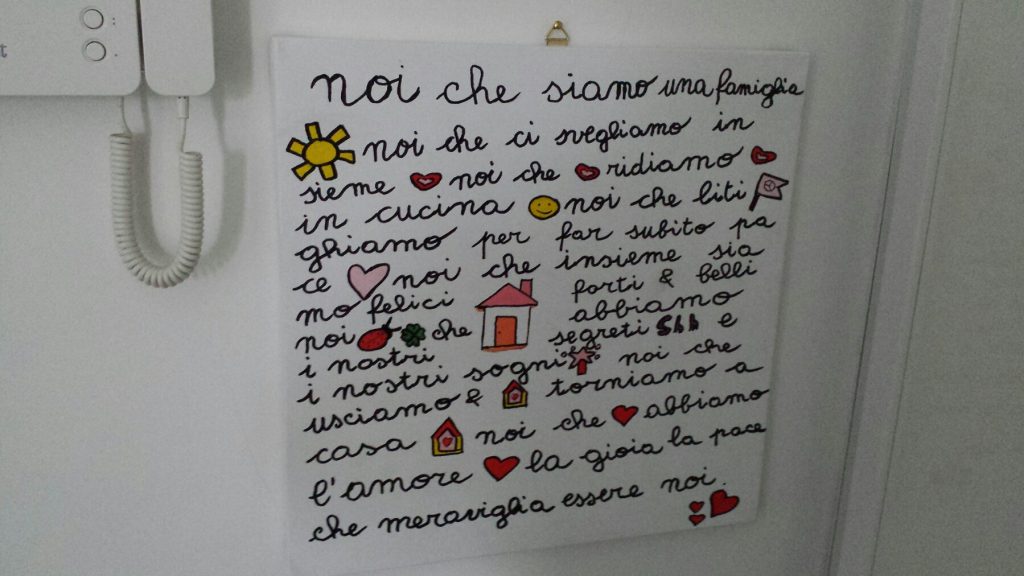 noi che siamo una famiglia
noi che ci svegliamo in
sieme noi che ridiamo
in cucina noi che liti
ghiamo per far subito pa
ce noi che insieme sia
mo felici forti & belli
noi che abbiamo
i nostri segreti Shh e
i nostri sogni noi che
usciamo & torniamo a
casa noi che abbiamo
l'amore la gioia la pace
che meraviglia essere noi.